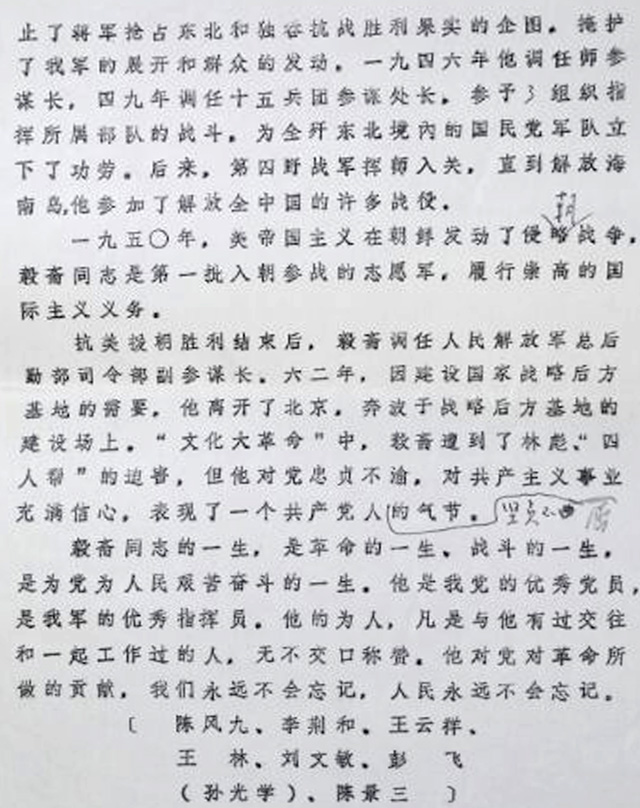 止了蒋军抢占东北和独吞抗战胜利果实的企图。掩护
了我军的展开和群众的发动。一九四六年他调任师参
谋长，四九年调任十五兵团参谋处长。参予了组织指
挥所属部队的战斗。为全歼东北境内的国民党军队立
下了功劳。后来，第四野战军挥师入关，直到解放海
南岛,他参加了解放全中国的许多战役。
朝
一九五〇年，美帝国主义在朝鲜发动了侵略战争，
毅斋同志是第一批入朝参战的志愿军，履行崇高的国
际主义义务。
抗美援朝胜利结束后，毅斋调任人民解放军总后
勤部司令部副参谋长。六二年，因建设国家战略后方
基地的需要，他离开了北京，奔波于战略后方基地的
建设场上。“文化大革命”中，毅斋遭到了林彪、“四
人帮”的迫害，但他对党忠贞不渝，对共产主义事业
充满信心，表现了一个共产党人的气节。坚贞不屈
毅斋同志的一生，是革命的一生、战斗的一生，
是为党为人民艰苦奋斗的一生。他是我党的优秀党员，
是我军的优秀指挥员。他的为人，凡是与他有过交往
和一起工作过的人，无不交口称赞。他对党对革命所
做的贡献，我们永远不会忘记，人民永远不会忘记。
〔 陈风九、李荆和、王云祥、
王 林、刘文敏、彭 飞
(孙光学)、陈景三 〕